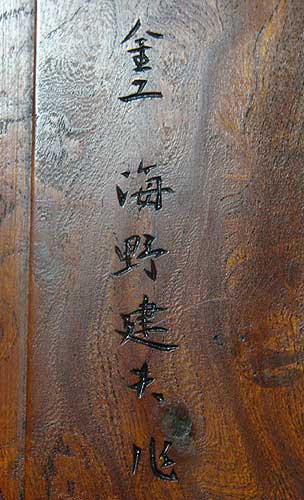 金工 海野建夫作